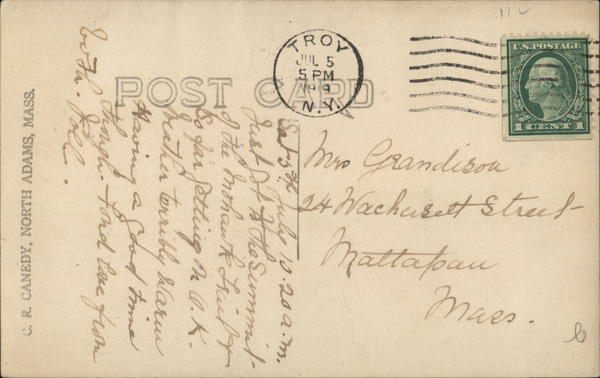 11c
TROY
JUL 5
5 PM
1919
N.Y.
U.S. POSTAGE
1 CENT 1
POST CARD
C. R. CANEDY, NORTH ADAMS, MASS.
Sat 5th July 10.20 a.m.
Just at the Summit
of the Mohawk Trail &
so far getting on O.K.
Weather terribly warm
Having a good time
though. Fond love from
both. Poll.
Mrs Grandison
24 Wachusett Street
Mattapan
Mass.